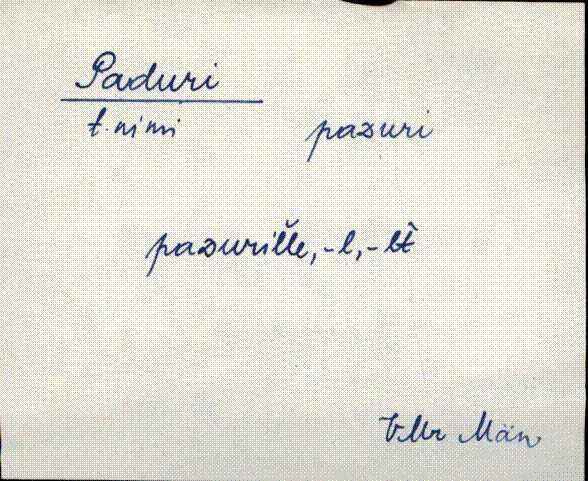 Paduri
t. nimi paзuri
paзuriĺĺe, -l, -lt̀
VMr Män